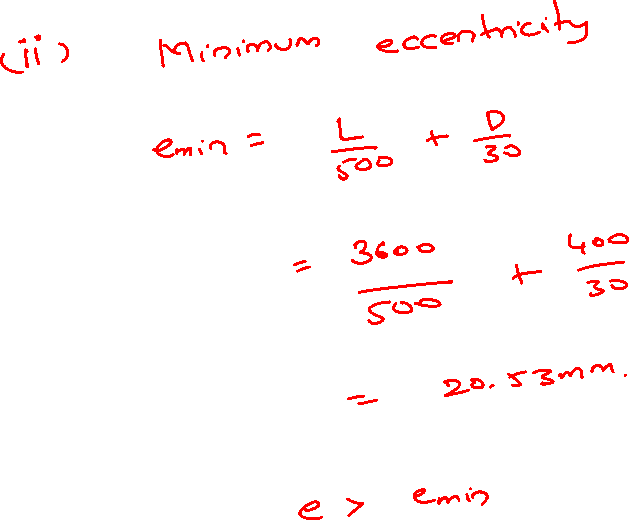 (ii) Minimum eccentricity
emin = L/500 + D/30
= 3600/500 + 400/30
= 20.53mm.
e > emin